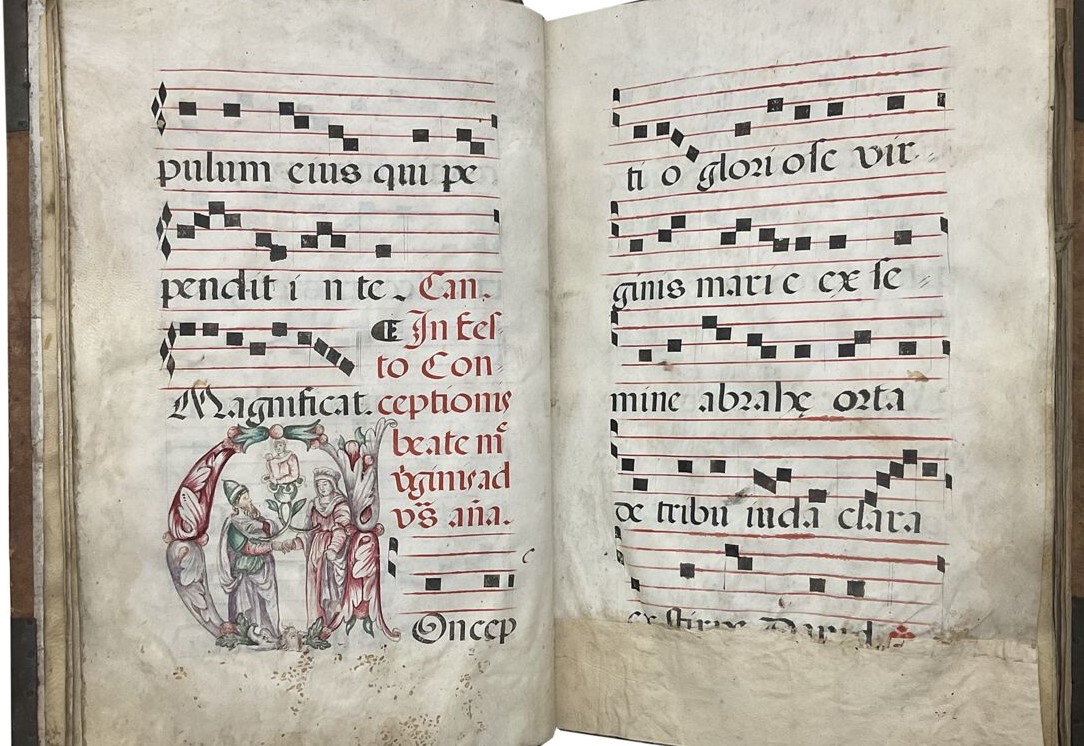 pulum eius qui pe
pendit i n te. Can.
Magnificat.
In fes
to Con
ceptionis
beate m̃
v̾ginis ad
vs̃ añã.
Oncep
ti o glori ose vir
ginis mari e ex se
mine abrahę orta
de tribu iuda clara
ex stirpe David